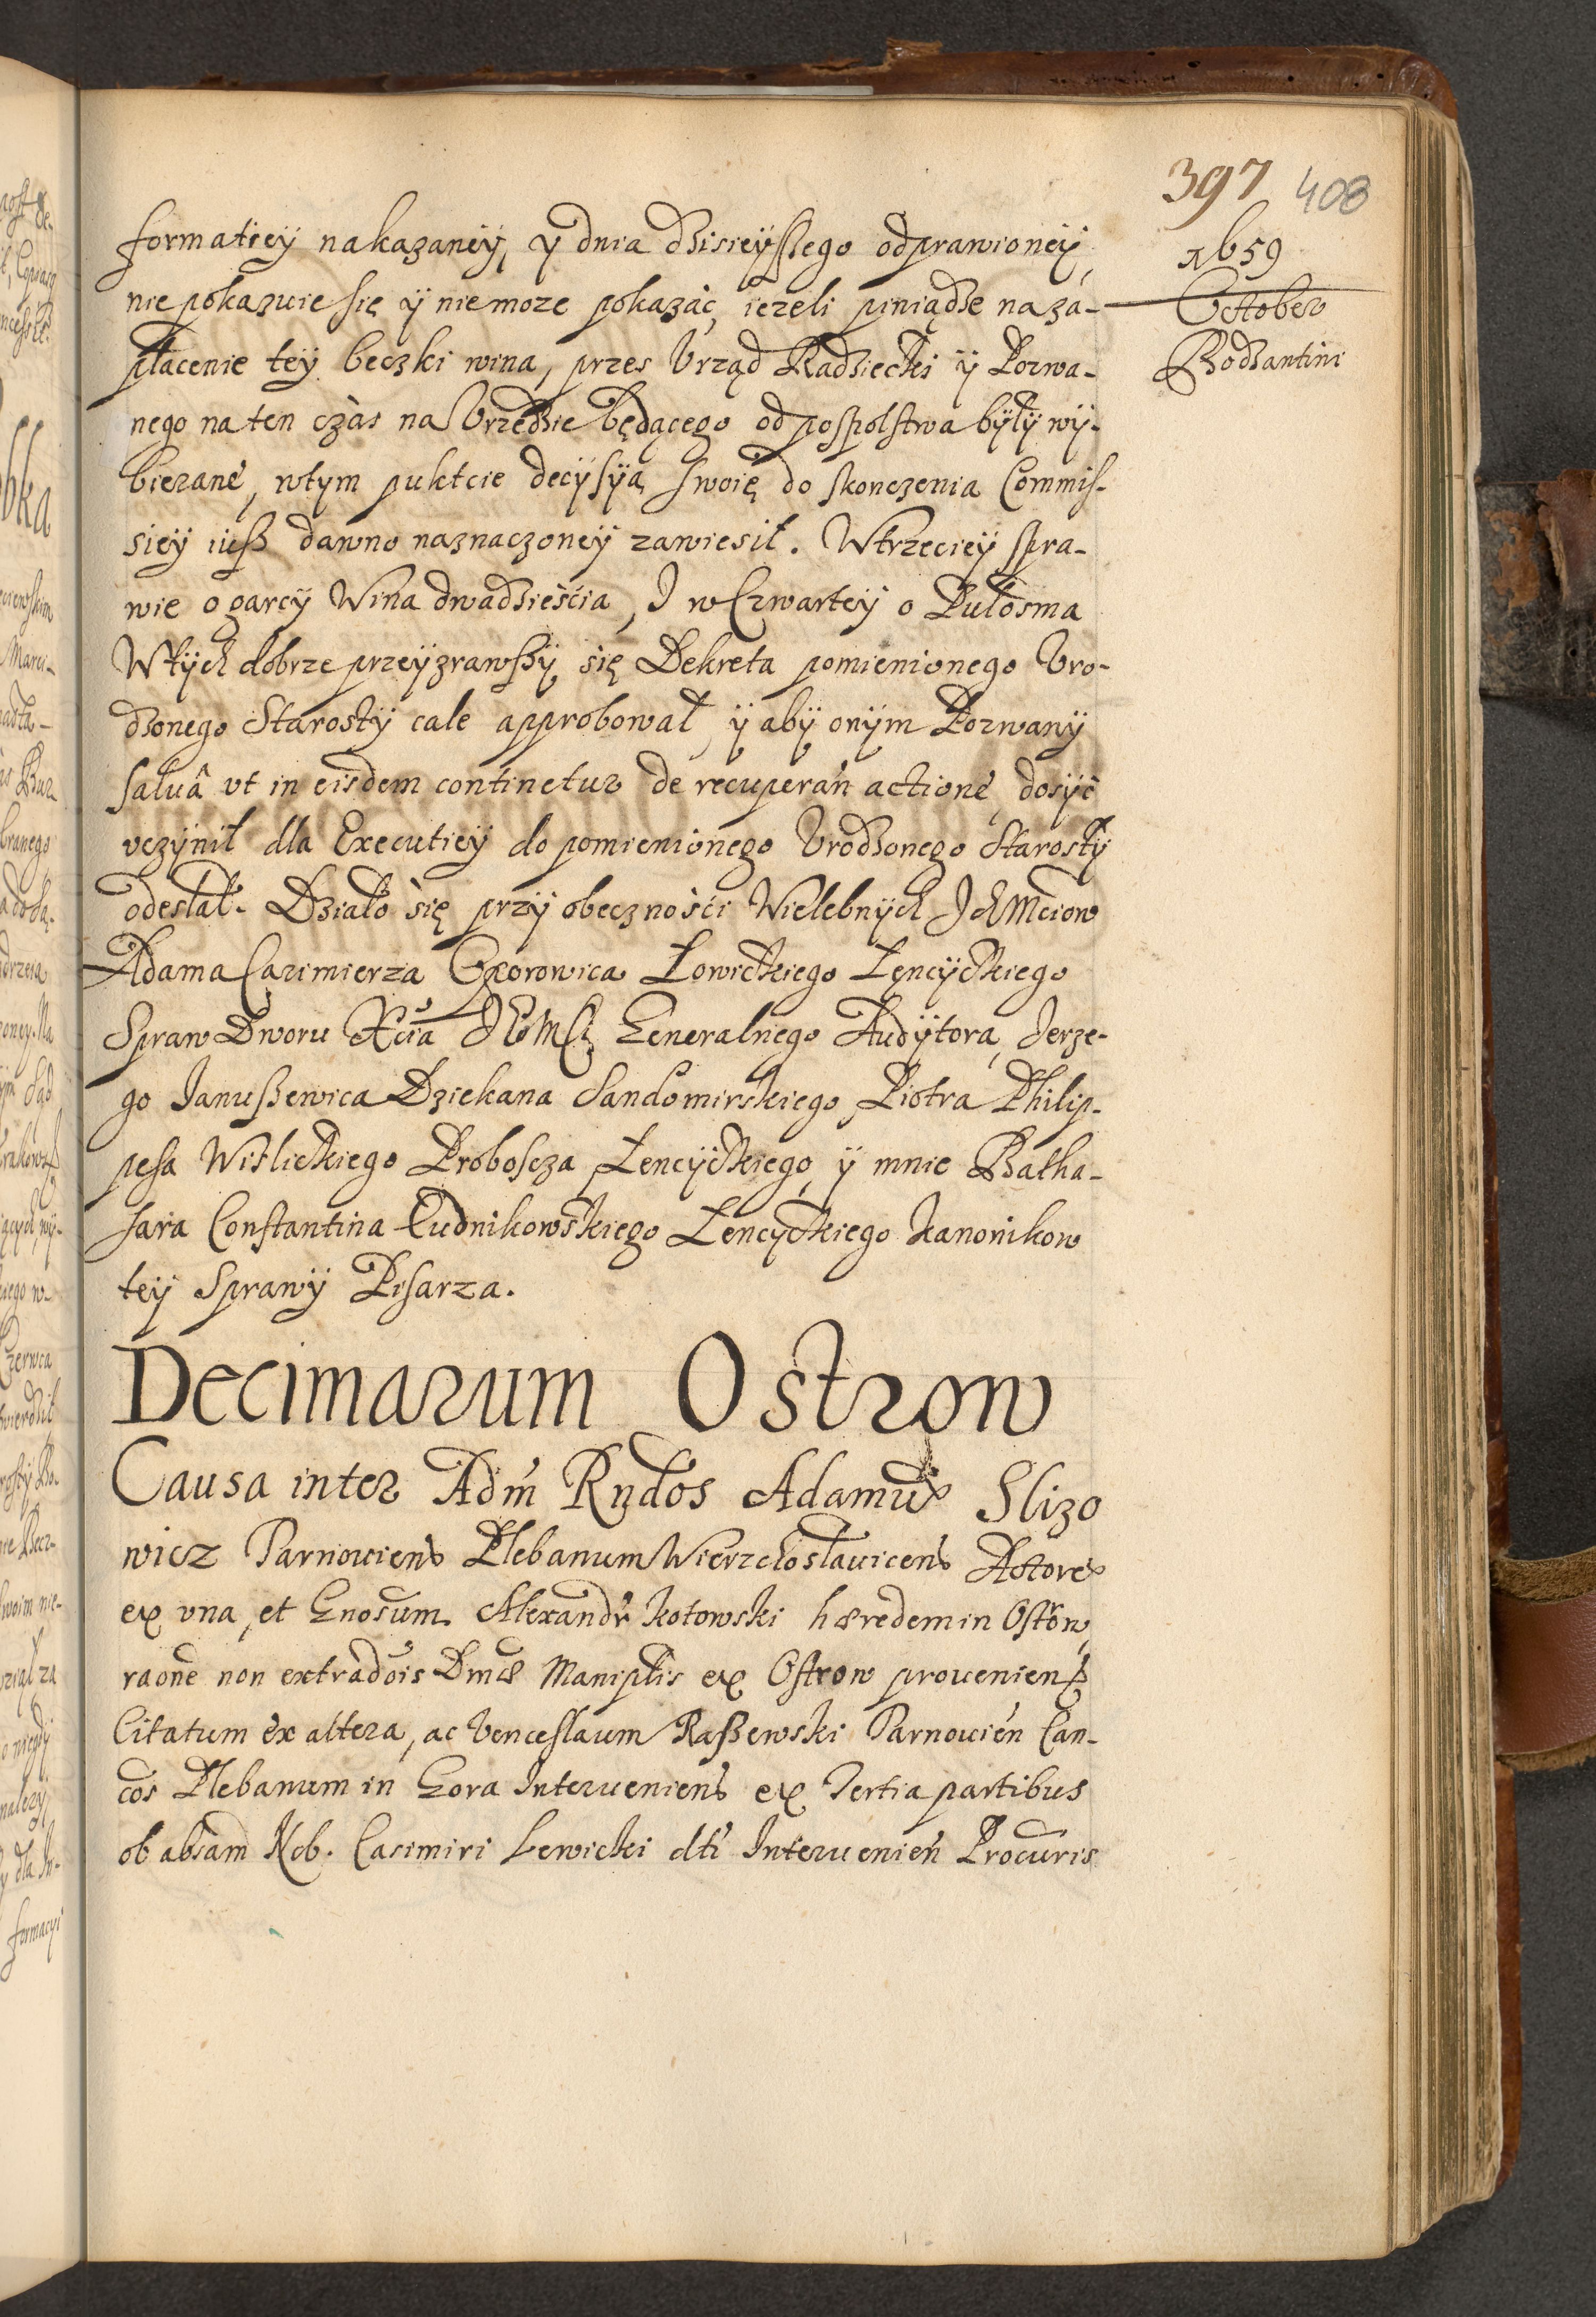 397 408
1659
October
Bodzantini
formatiey nakazaney, y dnia dzisieyszego odprawioney,
nie pokazuie się y nie moze pokazać, iezeli pmiądze na za-
płacenie tey beczki wina, przes Vrząd Radziecki y Pozwa-
nego na ten czàs na Vrzędzie będącego od pospolstwa były wy-
bierane, wtym puktcie decysyą swoię do skonczenia Commis-
siey iusz dawno naznaczoney zawiesił. Wtrzeciey spra-
wie o garcy Wina dwadzieścia, J w Czwartey o Pułosma
Wtych dobrze przeyzrawszy się Dekreta pomienionego Vro-
dzonego Starosty cale approbował, y aby onym Pozwany
saluâ vt in eisdem continetur de recuperań actione, dosyć
vczynił dla Executiey do pomienionego Vrodzonego Starosty
odesłał. Działo się przy obecznosći Wielebnych JchMciow
Adama Cazimierza Oxorowica Łowickiego Łęncyckiego
Spraw Dworu Xcia JEMCi Generalnego Audytora, Jerze-
go Januszewica Dziekana Sandomirskiego, Piotra Philip-
pesa Wislickiego Proboscza, Łencyckiego, y mnie Baltha-
sara Constantina Cudnikowskiego Łencyckiego Kanonikow
tey Sprawy Pisarza.
Decimarum Ostrow
Causa inter Adm Rndos Adamum Slizo
wicz Tarnouiens Plebanum Wierzchoslauicens Actorem
ex vna, et Gnosum Alexandr Kotowski hæredem in Ostrow,
raone non extradois Dmæ Maniplis ex Ostrow prouenien
Citatum ex altera, ac Venceslaum Raszewski Tarnouień Can-
cos Plebanum in Gora Interueniens ex Tertia partibus
ob absam Nob. Casimiri Lewicki dti Interuenień Procuris